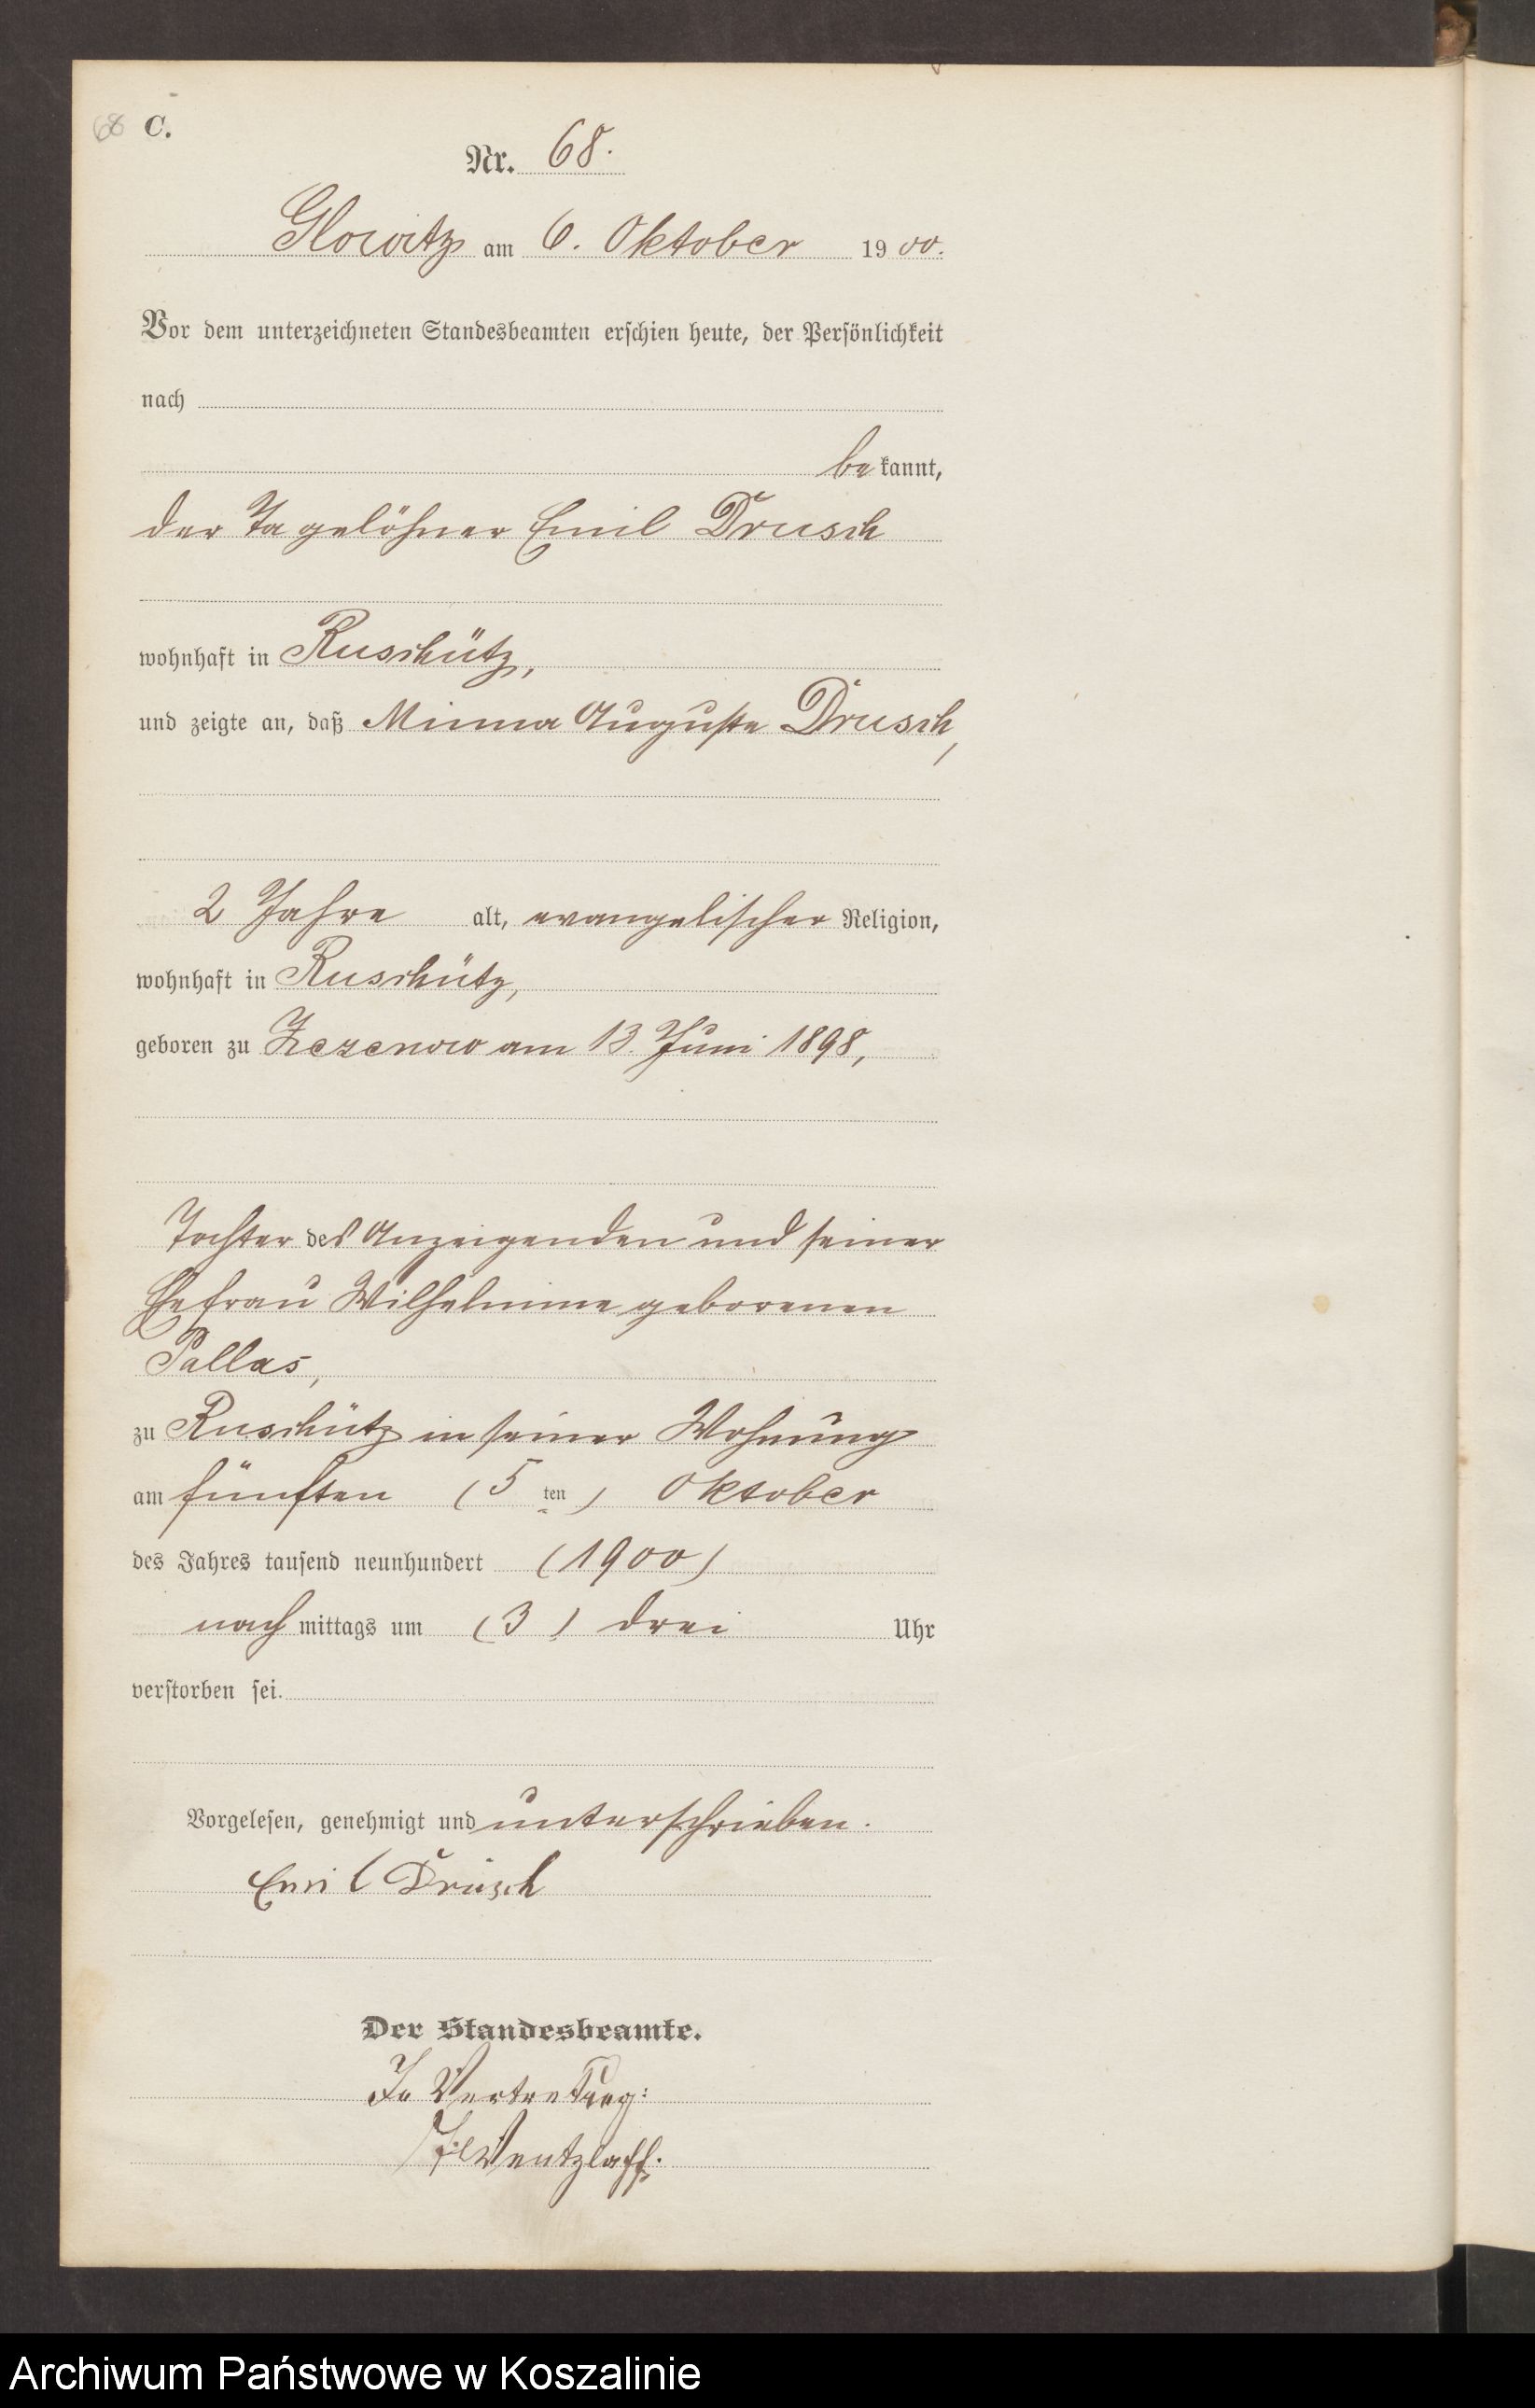 68 C.
Nr. 68.
Glowitz am 6. Oktober 1900.
Vor dem unterzeichneten Standesbeamten erschien heute, der Persönlichkeit
nach
bekannt,
der Tagelöhner Emil Drusch
wohnhaft in Ruschütz,
und zeigte an, daß Minna Auguste Drusch,
2 Jahre alt, evangelischer Religion,
wohnhaft in Ruschütz,
geboren zu Zezenow am 13. Juni 1898,
Tochter des Anzeigenden und seiner
Ehefrau Wilhelmine geborenen
Pallas,
zu Ruschütz in seiner Wohnung
am fünften (5 ten) Oktober
des Jahres tausend neunhundert (1900)
nach mittags um (3) drei Uhr
verstorben sei.
Vorgelesen, genehmigt und unterschrieben.
Emil Drusch
Der Standesbeamte.
In Vertretung:
Wentzlaff.
Archiwum Państwowe w Koszalinie